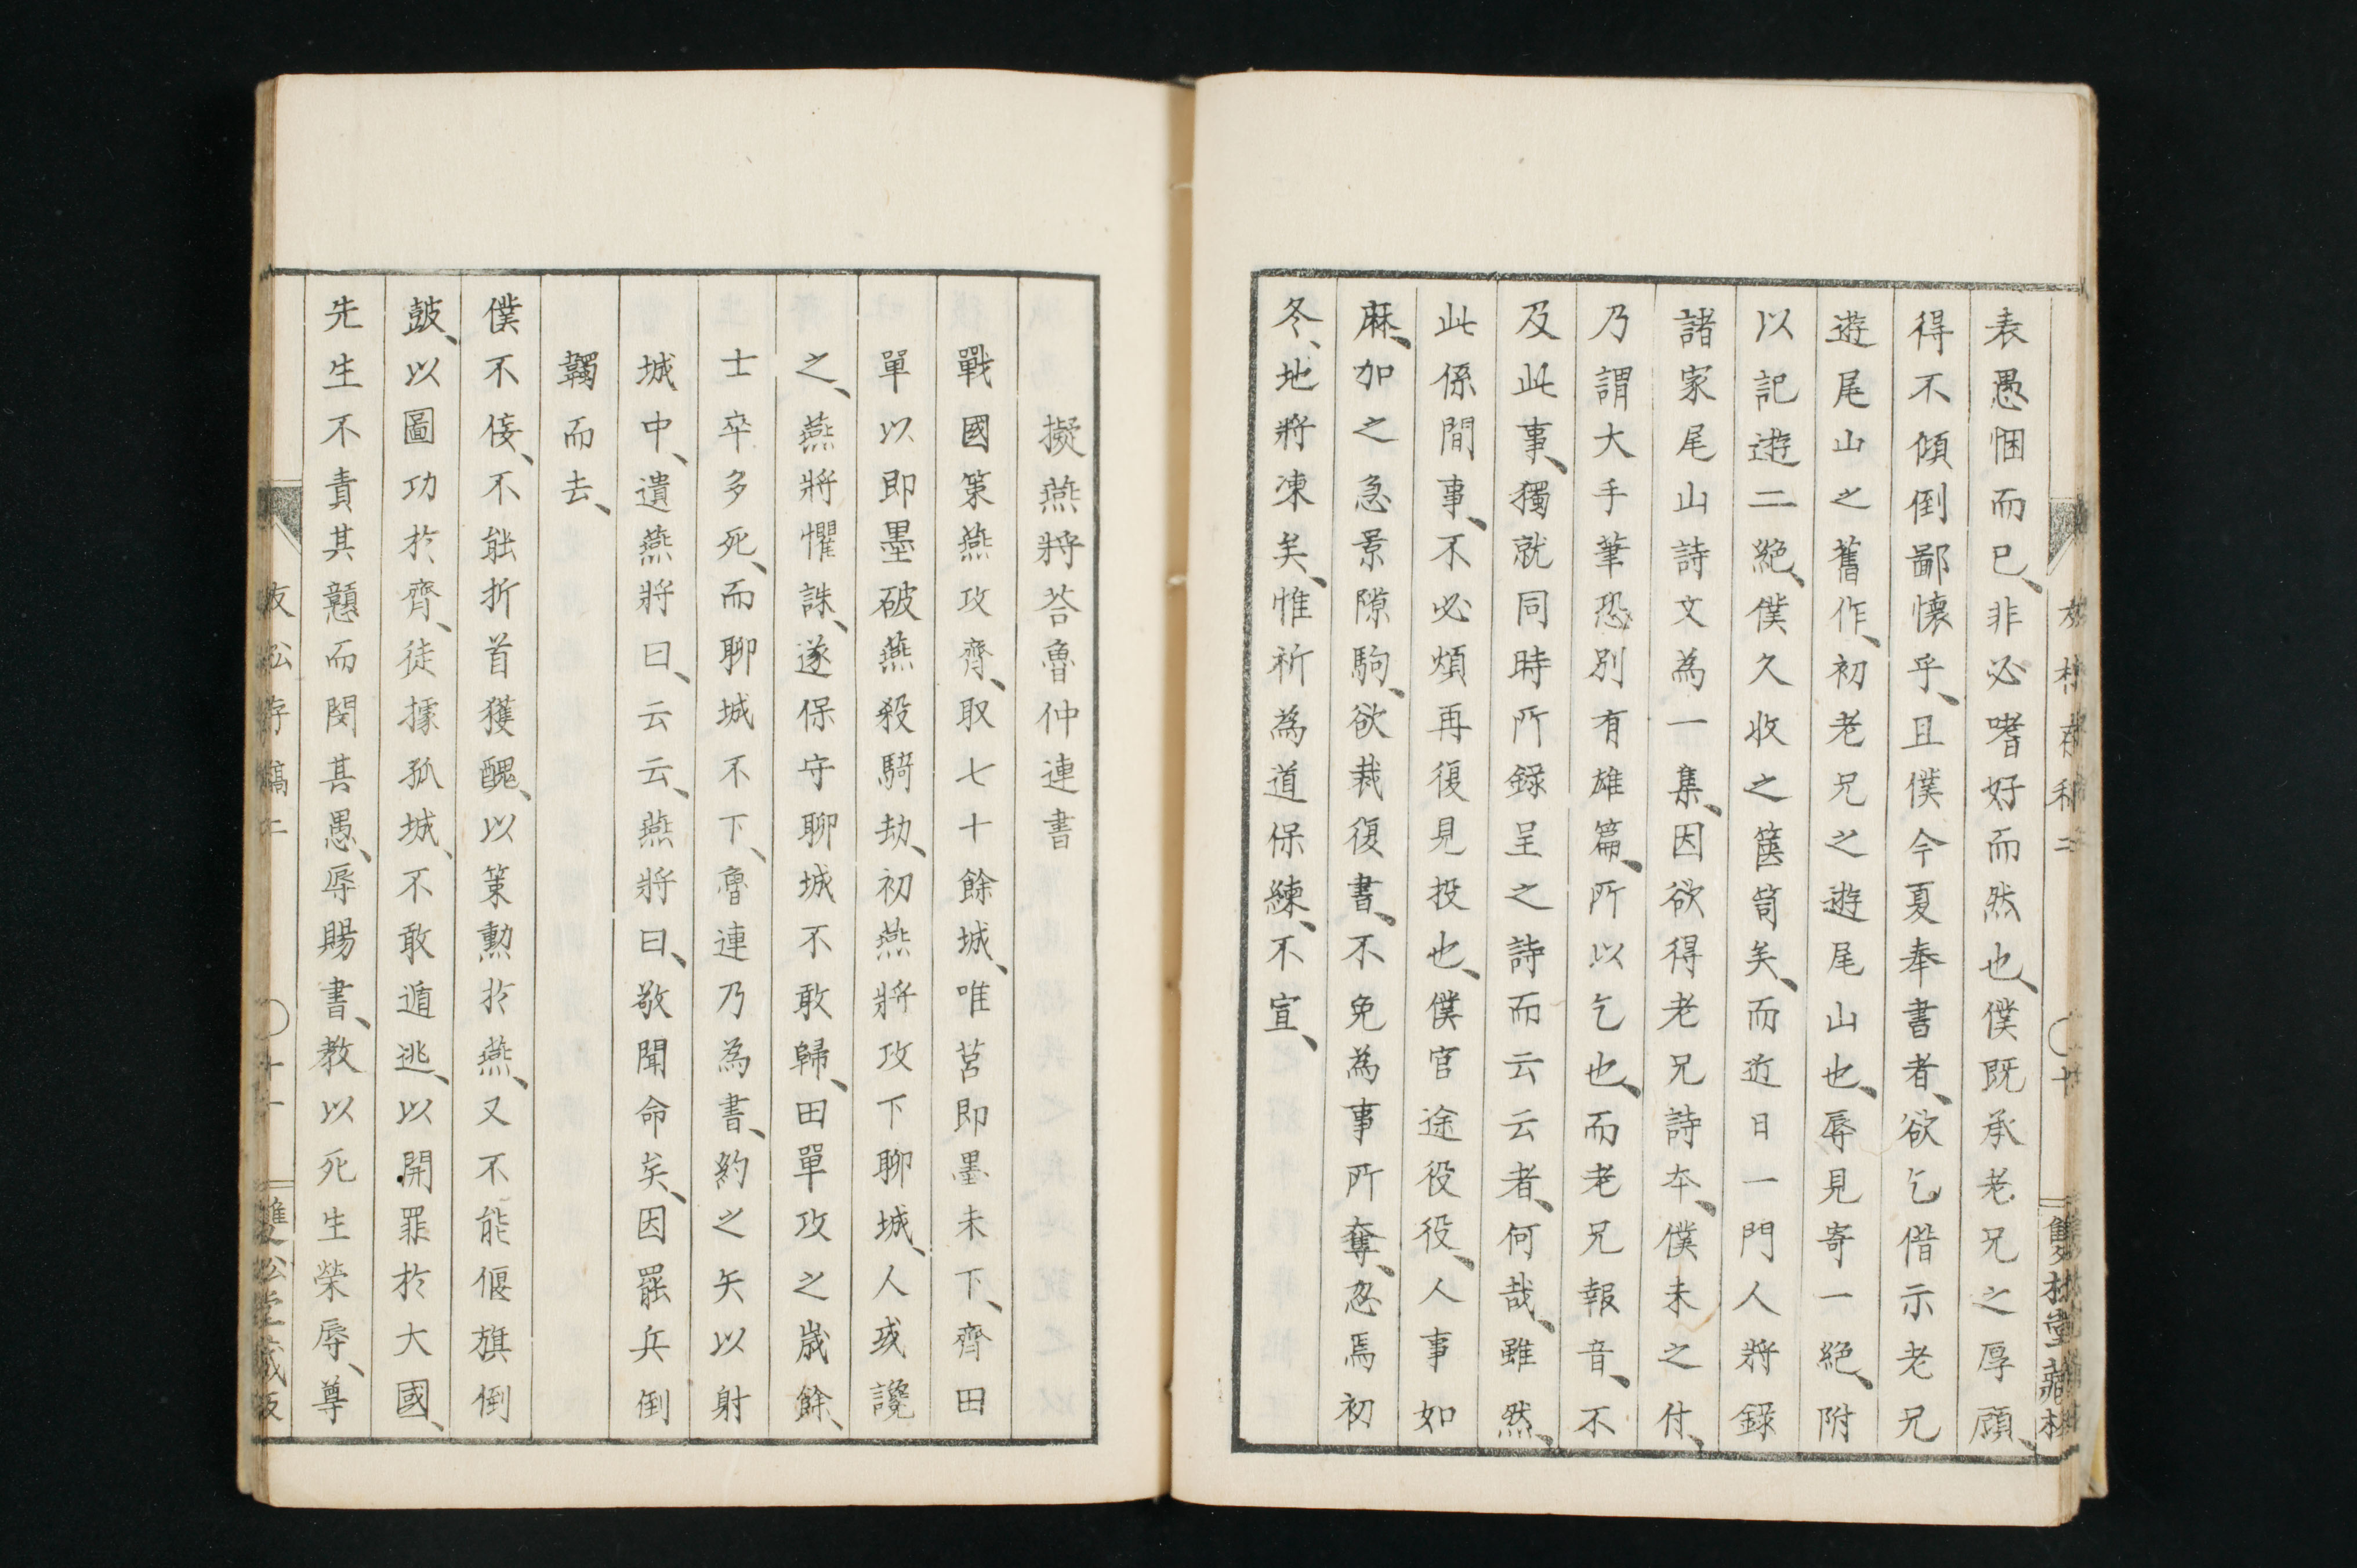 表愚悃而已、非必嗜好而然也、僕既承老兄之厚顧、
得不傾倒鄙懷乎、且僕今夏奉書者、欲乞借示老兄
遊尾山之舊作、初老兄之遊尾山也、辱見寄一絕、附
以記遊二絕、僕久收之篋笥矣、而近日一門人將錄
諸家尾山詩文為一集、因欲得老兄詩本、僕未之付、
乃謂大手筆恐別有雄篇、所以乞也、而老兄報音、不
及此事、獨就同時所錄呈之詩而云云者、何哉、雖然、
此係閒事、不必煩再復見投也、僕官途役役、人事如
麻、加之急景隙駒、欲裁復書、不免為事所奪、忽焉初
冬、地將凍矣、惟祈為道保練、不宣、
擬燕將荅魯仲連書
戰國策燕攻齊、取七十餘城、唯莒即墨未下、齊田
單以即墨破燕殺騎劫、初燕將攻下聊城、人或讒
之、燕將懼誅、遂保守聊城不敢歸、田單攻之歲餘、
士卒多死、而聊城不下、魯連乃為書、約之矢以射
城中、遺燕將曰、云云、燕將曰、敬聞命矣、因罷兵倒
韣而去、
僕不佞、不能折首獲醜、以策勳於燕、又不能偃旗倒
鼓、以圖功於齊、徒據孤城、不敢遁逃、以開罪於大國、
先生不責其戇而閔其愚、辱賜書、教以死生榮辱、尊
松
稿二
〇十一
雙松堂藏板